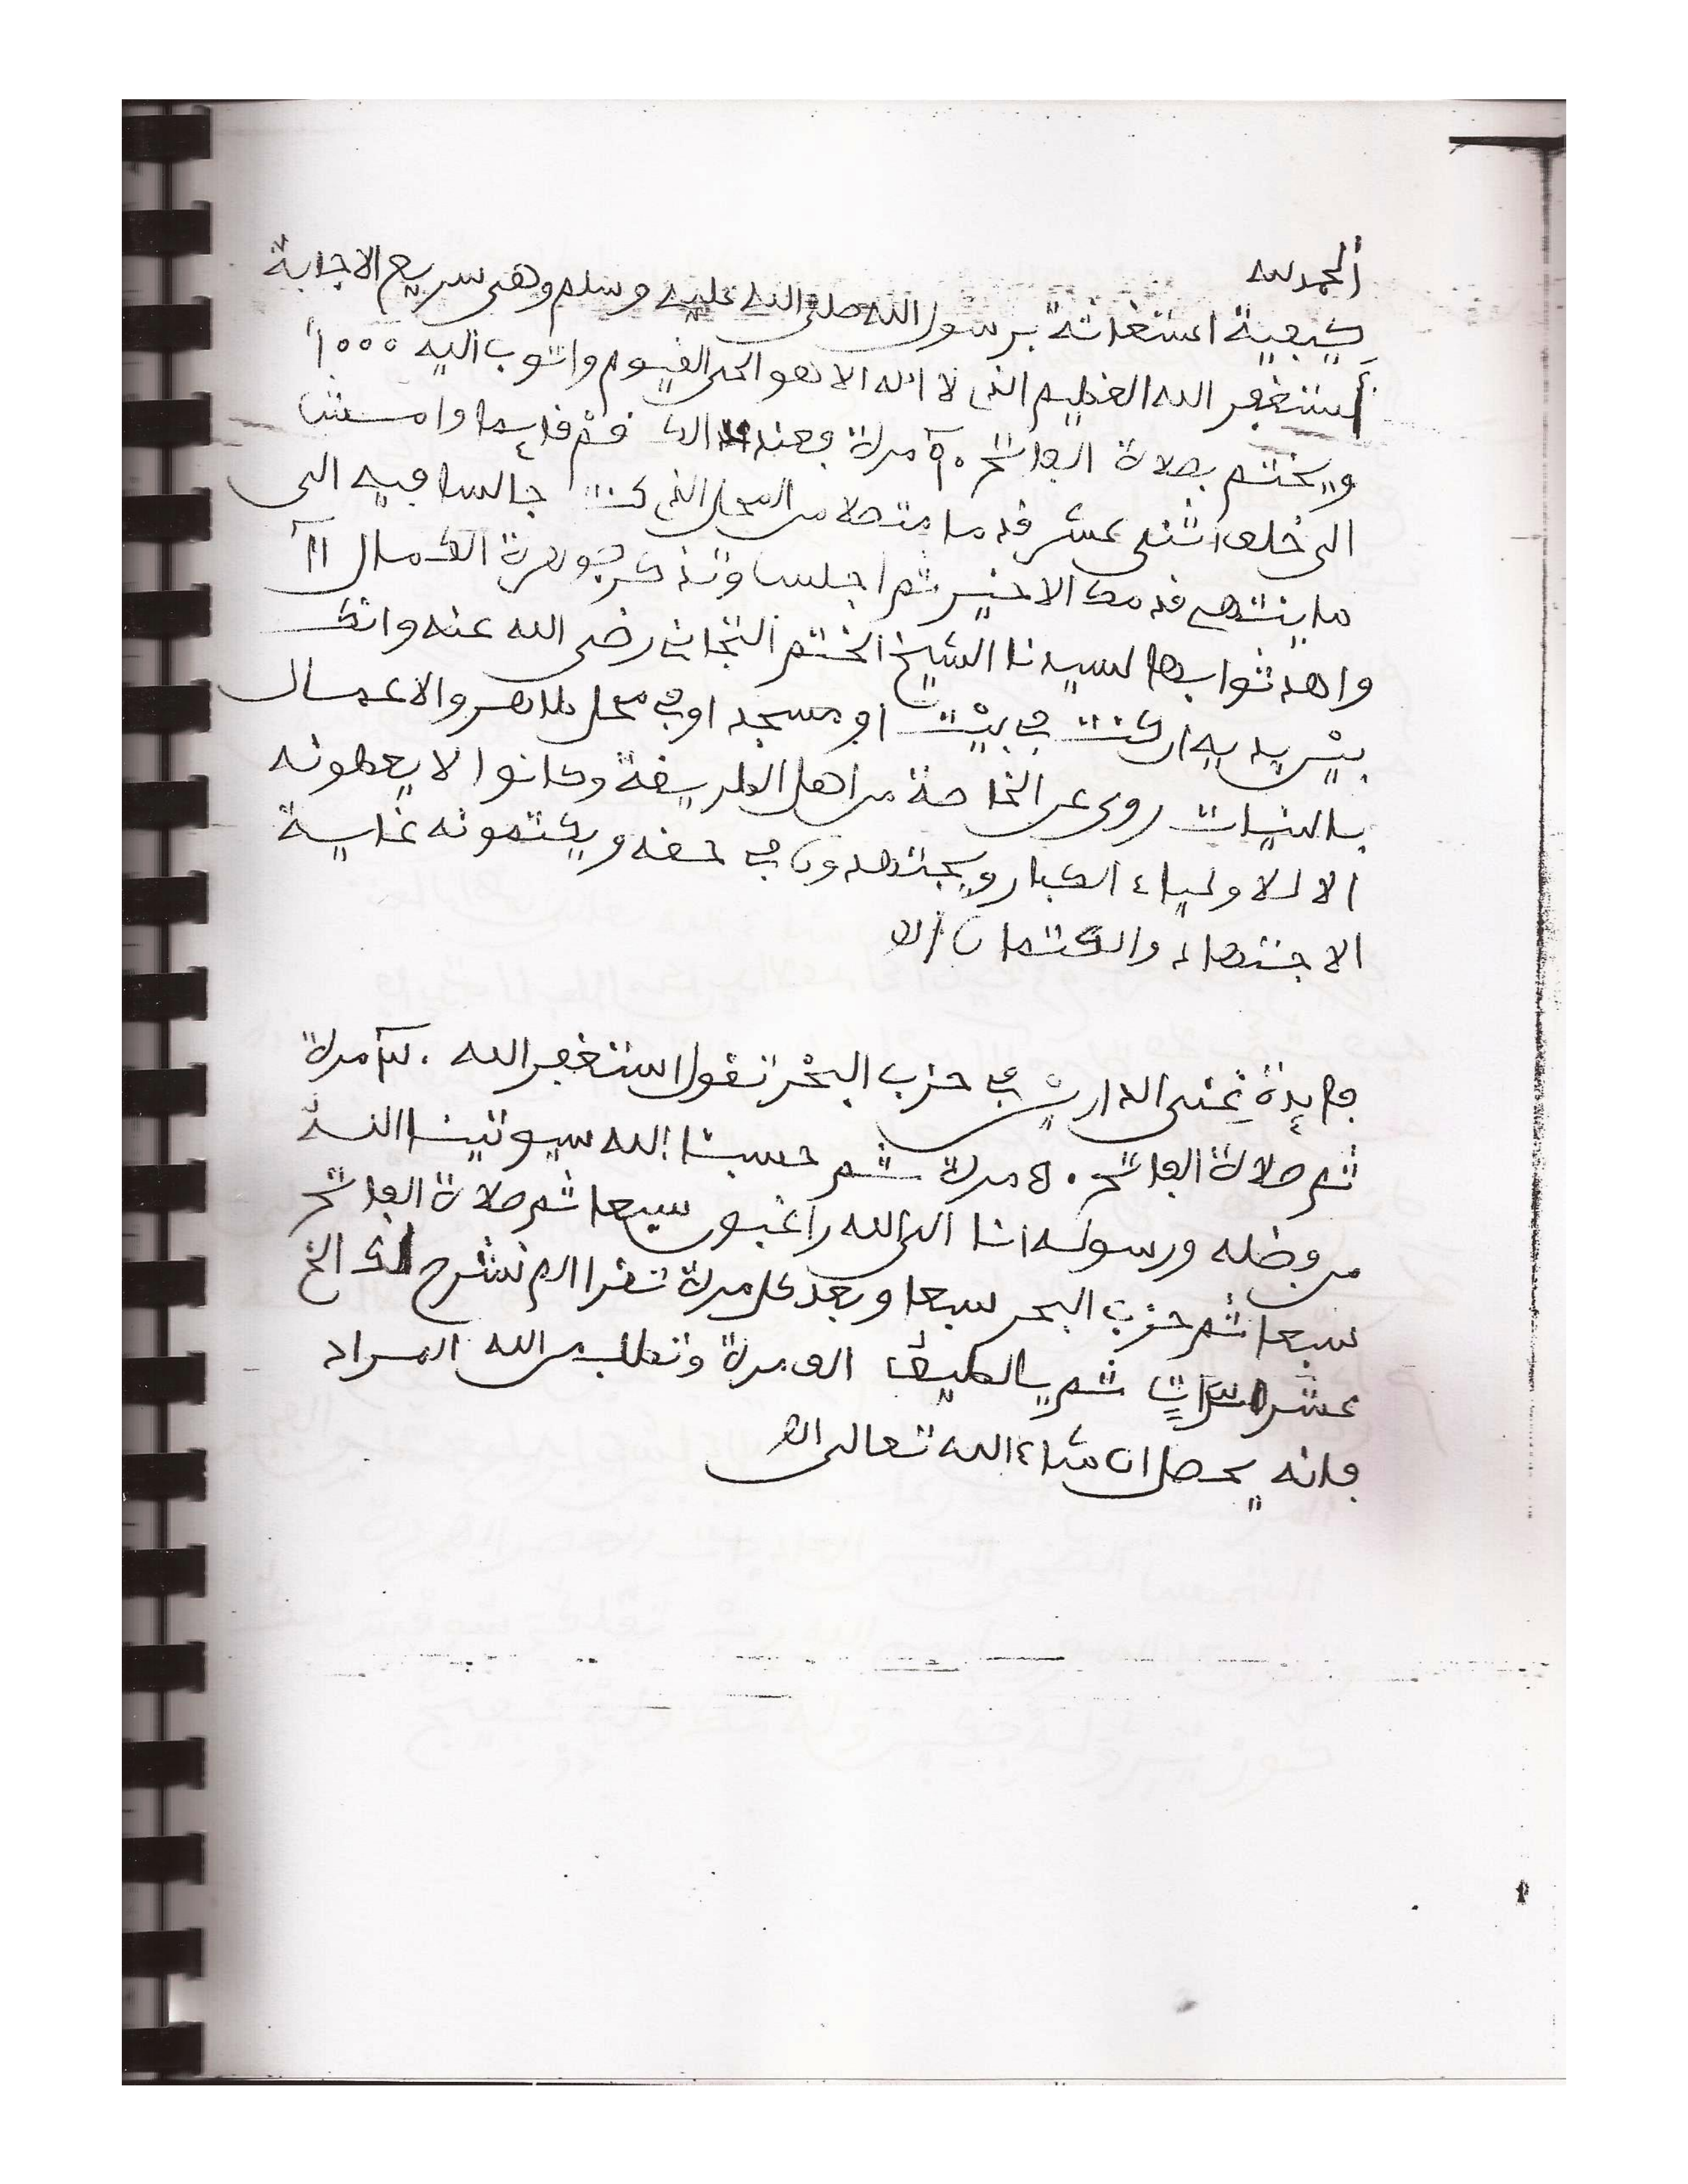 الحمد لله
كيفية استغاثة برسول الله صلى الله عليه وسلم وهي سريع الاجابة
أستغفر الله العظيم الذي لا اله الا هو الحي القيوم واتوب اليه ١٠٠٠
ويختم بصلاة الفاتح مرة فعند ذالك قم قايما وامش
الى خلف اثنى عشر قدما متصلا من المحل الذي كنت جالسا فيه الى
ما ينتهى قدمك الاخير ثم اجلس وتذكر جوهرة الكمال ١١
واهد ثوابها لسيدنا الشيخ الختم التجاني رضي الله عنه وانك
بين يديه ان كنت في بيت او مسجد او في محل طاهر والاعمال
بالنيات روى عن الخاصة من اهل الطريقة وكانوا لا يعطونه
الا للاولياء الكبار ويجتهدون في حفه ويكتمونه غاية
الاجتهاد والكتمان اه
فايدة غنى الدارين في حزب البحر تقول استغفر الله مرة
ثم صلاة الفاتح ٥٠ مرة ثم حسبنا الله سيوتينا الله
من فضله ورسوله انا الى الله راغبون سبعا ثم صلاة الفاتح
سبعا ثم حزب البحر سبعا وبعد كل مرة تقرا الم نشرح لك الخ
عشر مرات ثم يالطيف الف مرة وتطلب من الله المراد
فانه يحصل ان شاء الله تعالى اه